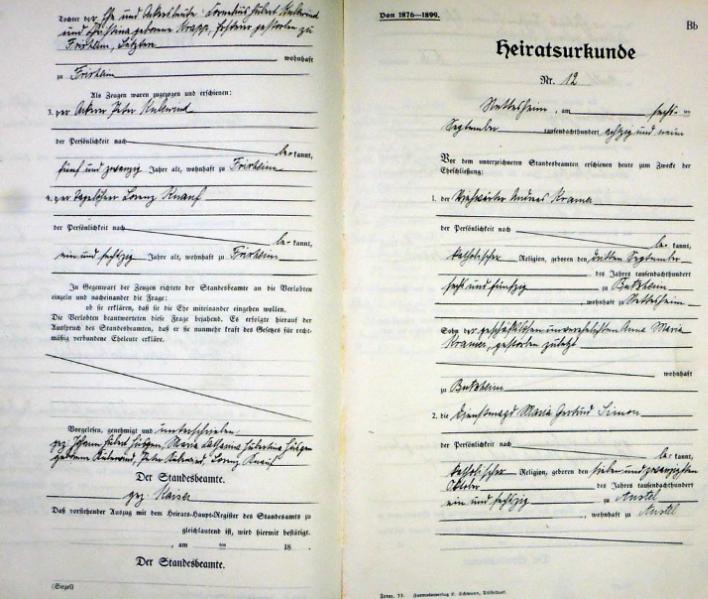 Tochter der Ehe und Ackersleute Cornelius Hubert Kulwind
und Christina geborene Krapp, Letztere gestorben zu
Frixheim, Letztere
wohnhaft
zu Frixheim
Als Zeugen waren zugezogen und erschienen:
3. der Ackerer Peter Kulwind
der Persönlichkeit nach
be kannt,
fünf und zwanzig Jahre alt, wohnhaft zu Frixheim
4. der Tagelöhner Lorenz Knauf
der Persönlichkeit nach
be kannt,
ein und sechzig Jahre alt, wohnhaft zu Frixheim
In Gegenwart der Zeugen richtete der Standesbeamte an die Verlobten
einzeln und nacheinander die Frage:
ob sie erklären, daß sie die Ehe miteinander eingehen wollen.
Die Verlobten beantworteten diese Frage bejahend. Es erfolgte hierauf der
Ausspruch des Standesbeamten, daß er sie nunmehr kraft des Gesetzes für recht-
mäßig verbundene Eheleute erkläre.
Vorgelesen, genehmigt und unterschrieben:
gez. Johann Hubert Maria Catharina Hubertina
geborene Kulwind, Peter Kulwind, Lorenz Knauf
Der Standesbeamte.
gez. Kaiser
Daß vorstehender Auszug mit dem Heirats-Haupt-Register des Standesamts zu
gleichlautend ist, wird hiermit bestätigt.
, am ten 18
Der Standesbeamte.
(Siegel)
Von 1876—1899.
Bb
Heiratsurkunde
Nr. 12
Nettesheim, am sechs ten
September tausendachthundert achtzig und neun
Vor dem unterzeichneten Standesbeamten erschienen heute zum Zwecke der
Eheschließung:
1. der Andreas Kramer
der Persönlichkeit nach
be kannt,
katholischer Religion, geboren den dritten September
des Jahres tausendachthundert
sechs und fünfzig zu Butzheim
, wohnhaft Nettesheim
Sohn der geschäftslosen unverehelichten Anna Maria
Kramer, gestorben zuletzt
wohnhaft
zu Butzheim
2. die Dienstmagd Maria Gertrud Simon
der Persönlichkeit nach
be kannt,
katholischer Religion, geboren den sieben und zwanzigsten
Oktober des Jahres tausendachthundert
ein und sechzig zu Anstel
, wohnhaft zu Anstel